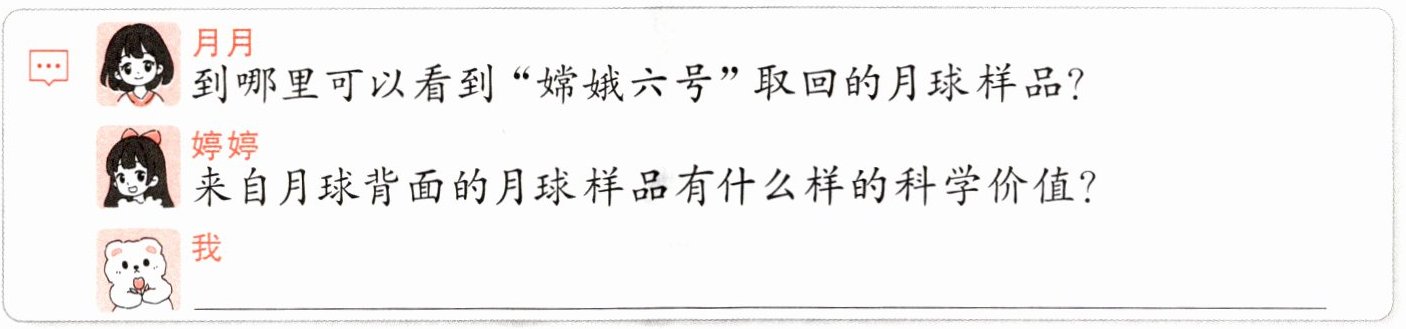 月月
到哪里可以看到“嫦娥六号”取回的月球样品？
婷婷
来自月球背面的月球样品有什么样的科学价值？
我